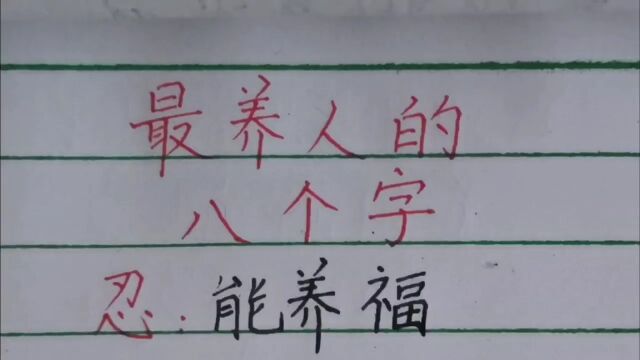 最养人的
八个字
忍:能养福